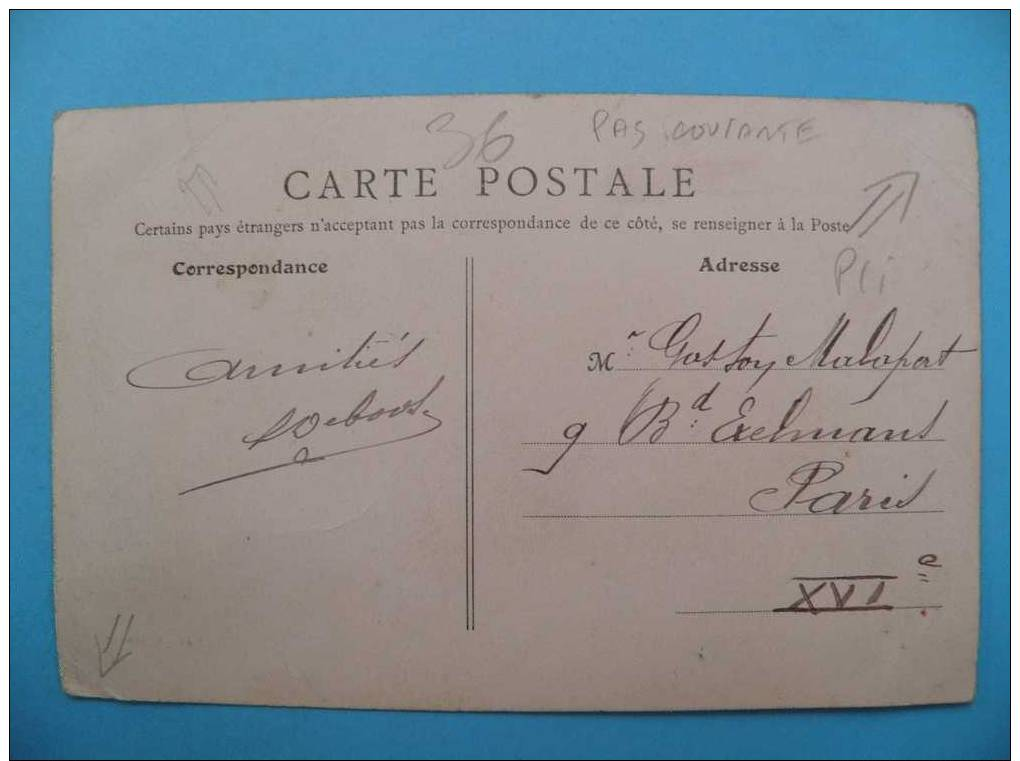 36 PAS COURANTE
CARTE POSTALE
Certains pays étrangers n'acceptant pas la correspondance de ce côté, se renseigner à la Poste
Correspondance
Adresse
Pli
Amitiés
Mr. Gaston Malapert
9 Bd. Exelmans
Paris
XVIe